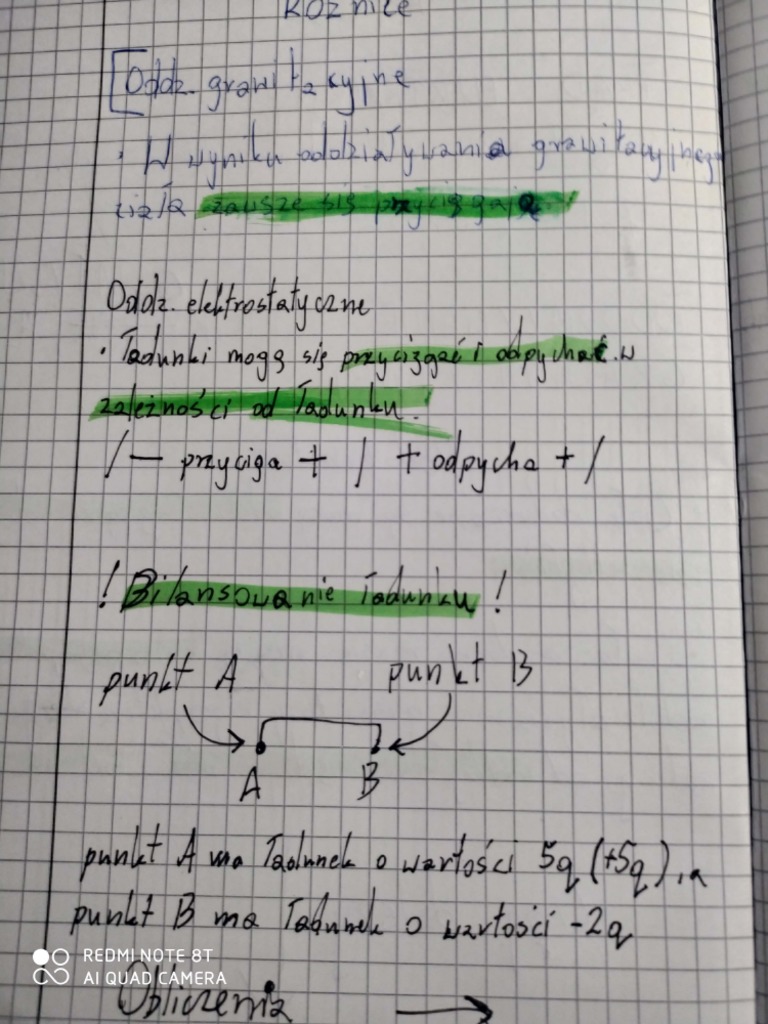 Różnice
Oddz. grawitacyjne
• W wyniku oddziaływania grawitacyjnego
ciała zawsze się przyciągają
Oddz. elektrostatyczne
• Ładunki mogą się przyciągać i odpychać w
zależności od ładunku.
/ − przyciga + / + odpycha + /
! Bilansowanie ładunku !
punkt A punkt B
A B
punkt A ma ładunek o wartości 5q (+5q), a
punkt B ma ładunek o wartości -2q
REDMI NOTE 8T
AI QUAD CAMERA
Obliczenia →